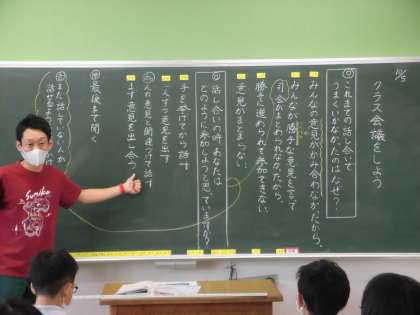 10/5
クラス会議をしよう
◎これまでの話し合いで
うまくいかなかったのはなぜ?
みんなの意見がかみ合わなかったから。
みんなが勝手な意見を言って
司会がまとめられなかったから。
勝手に進められて参加できない。
意見がまとまらない
◎話し合いの時、あなたは
どのように参加しようと思っていますか?
手を挙げてから話す
一人ずつ意見を出す
人の意見と関連づけて話す
まず意見を出し合う
最後まで聞く
まだ話していない人が
話せるよう